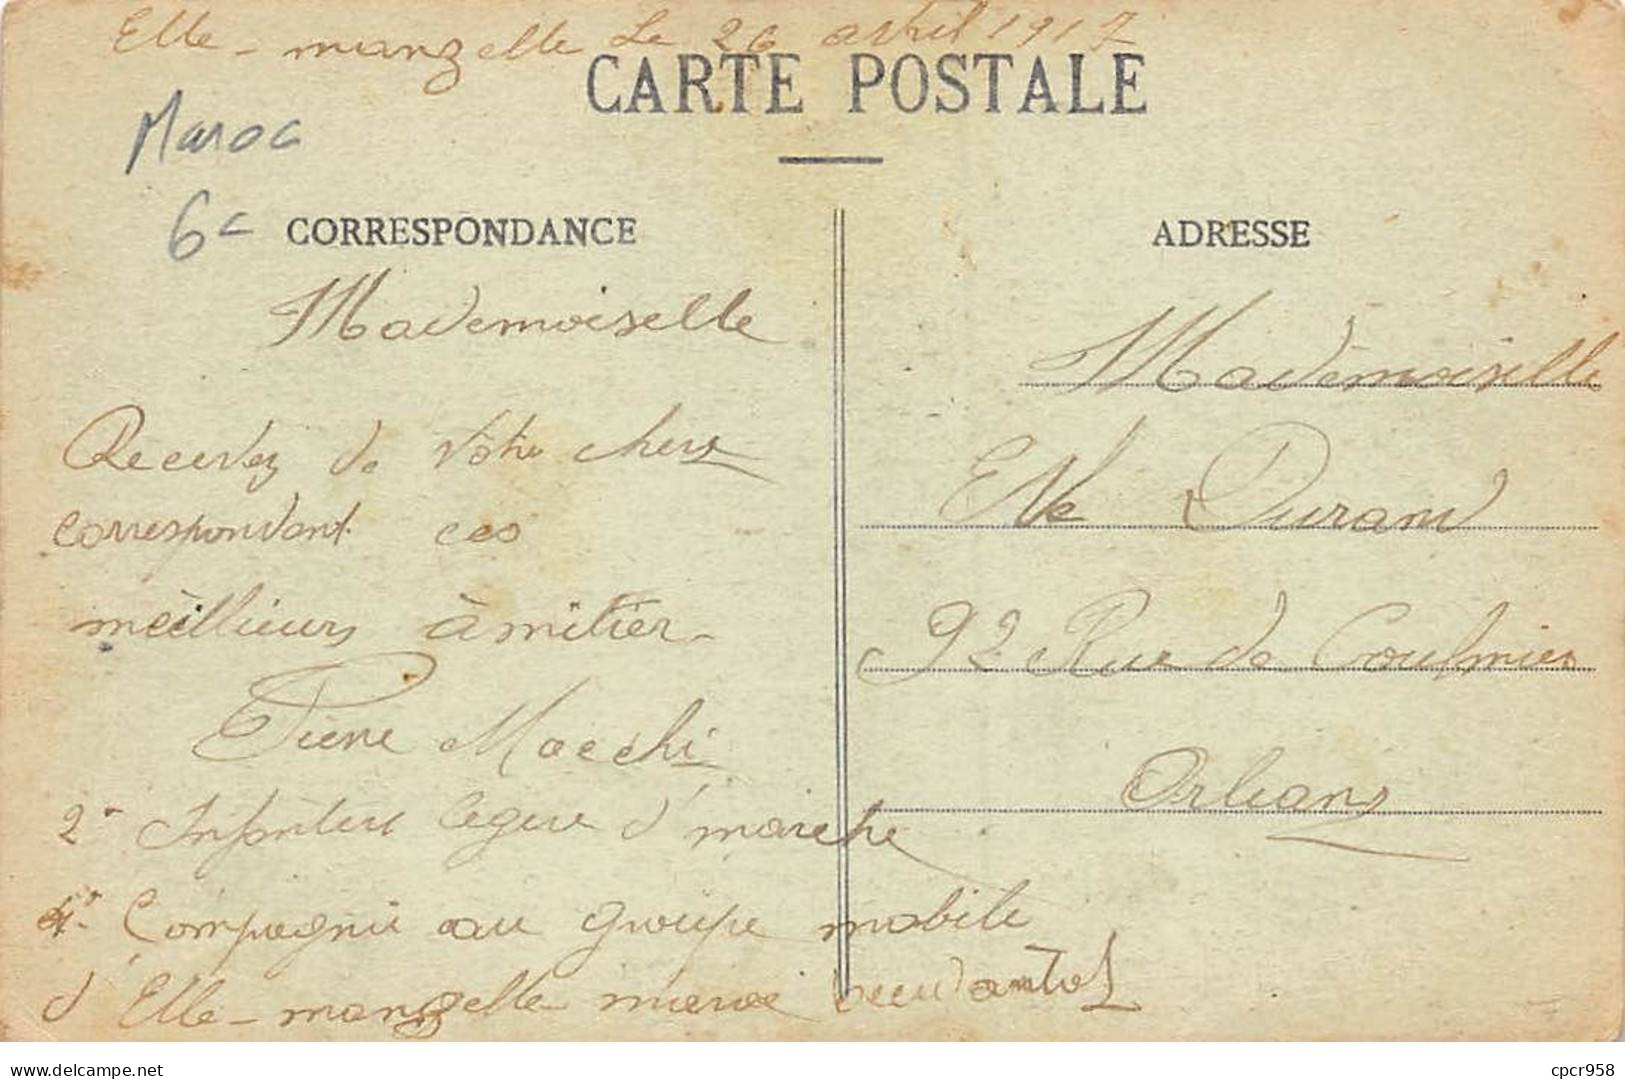 Elle-manzelle Le 26 avril 1917
CARTE POSTALE
Maroc
6-
CORRESPONDANCE
Mademoiselle
Recevez de votre chere
correspondant ces
meillieurs àmitier-
Pierre Macchi
2e Infanteri legere d'marche
4e Compagnie au groupe mobile
d'Elle-manzelle maroc
ADRESSE
Mademoiselle
Eve Durand
92 Rue de Coulmier
Orleans
cpcr958
www.delcampe.net